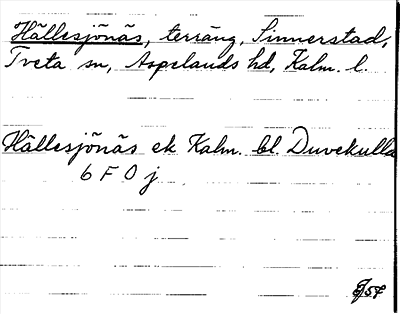 Hällesjönäs, terräng, Sinnerstad,
Tveta sn, Aspelands hd, Kalm. l.
Hällesjönäs ek Kalm. bl. Duvekulla
6 F 0 j